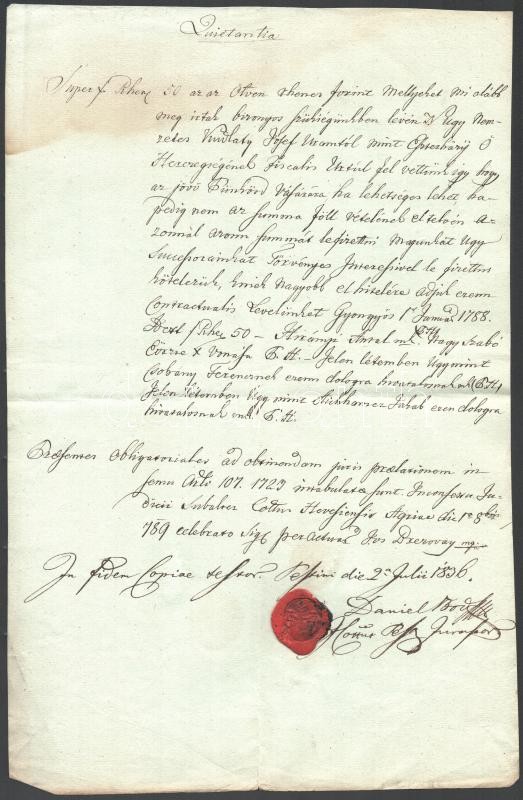 Quietantia
Super f Rhen 50 az az Ötven rhenes forint mellyeket mi alább
meg irtak bizonyos szükségünkben levén Ns Ugy Nem-
zetes Vudlaty Josef Uramtól mint Eszterházÿ Ő
Herczegségének Fiscalis Urtul fel vettünk igy hogy
az jövő Pünkösd Vásárára ha lehetséges lehet, ha-
pedig nem az summa fölt vételének el telvén a-
zonnál azonn summát lefizettni Magunkat Ugy
Successorainkat Törvényes Interessivel le fizettni
köteleztük, kinek Nagyobb el hitelére adjuk ezenn
Contractualis Levelünket Gyöngyös 1a Januar 1788.
f Rhen 50 – Antal mk P.H. Nagy Szabó
x Vonása P.H. – Jelen létemben Ugymint
Csobány Ferencznek ezenn dologra hivatalosnak mk (P.H.)
Jelen létemben Ugy mint Jakab ezen dologra
hivatalosnak mk. P.H.
Præsentes Obligatoriales ad obtinendam juris prælationem in
sensu Arti 107. 1723 intabulatæ sunt. In consessu Ju-
dicii Subalter Cottus Hevesiensis Agriae die 1a 8bris
789 celebrato Sig per actuar Jos Dzerovay mp.
In fidem Copiae testor. Pestini die 2a Julii 1836.
Daniel
Cottus Pest Jurassor